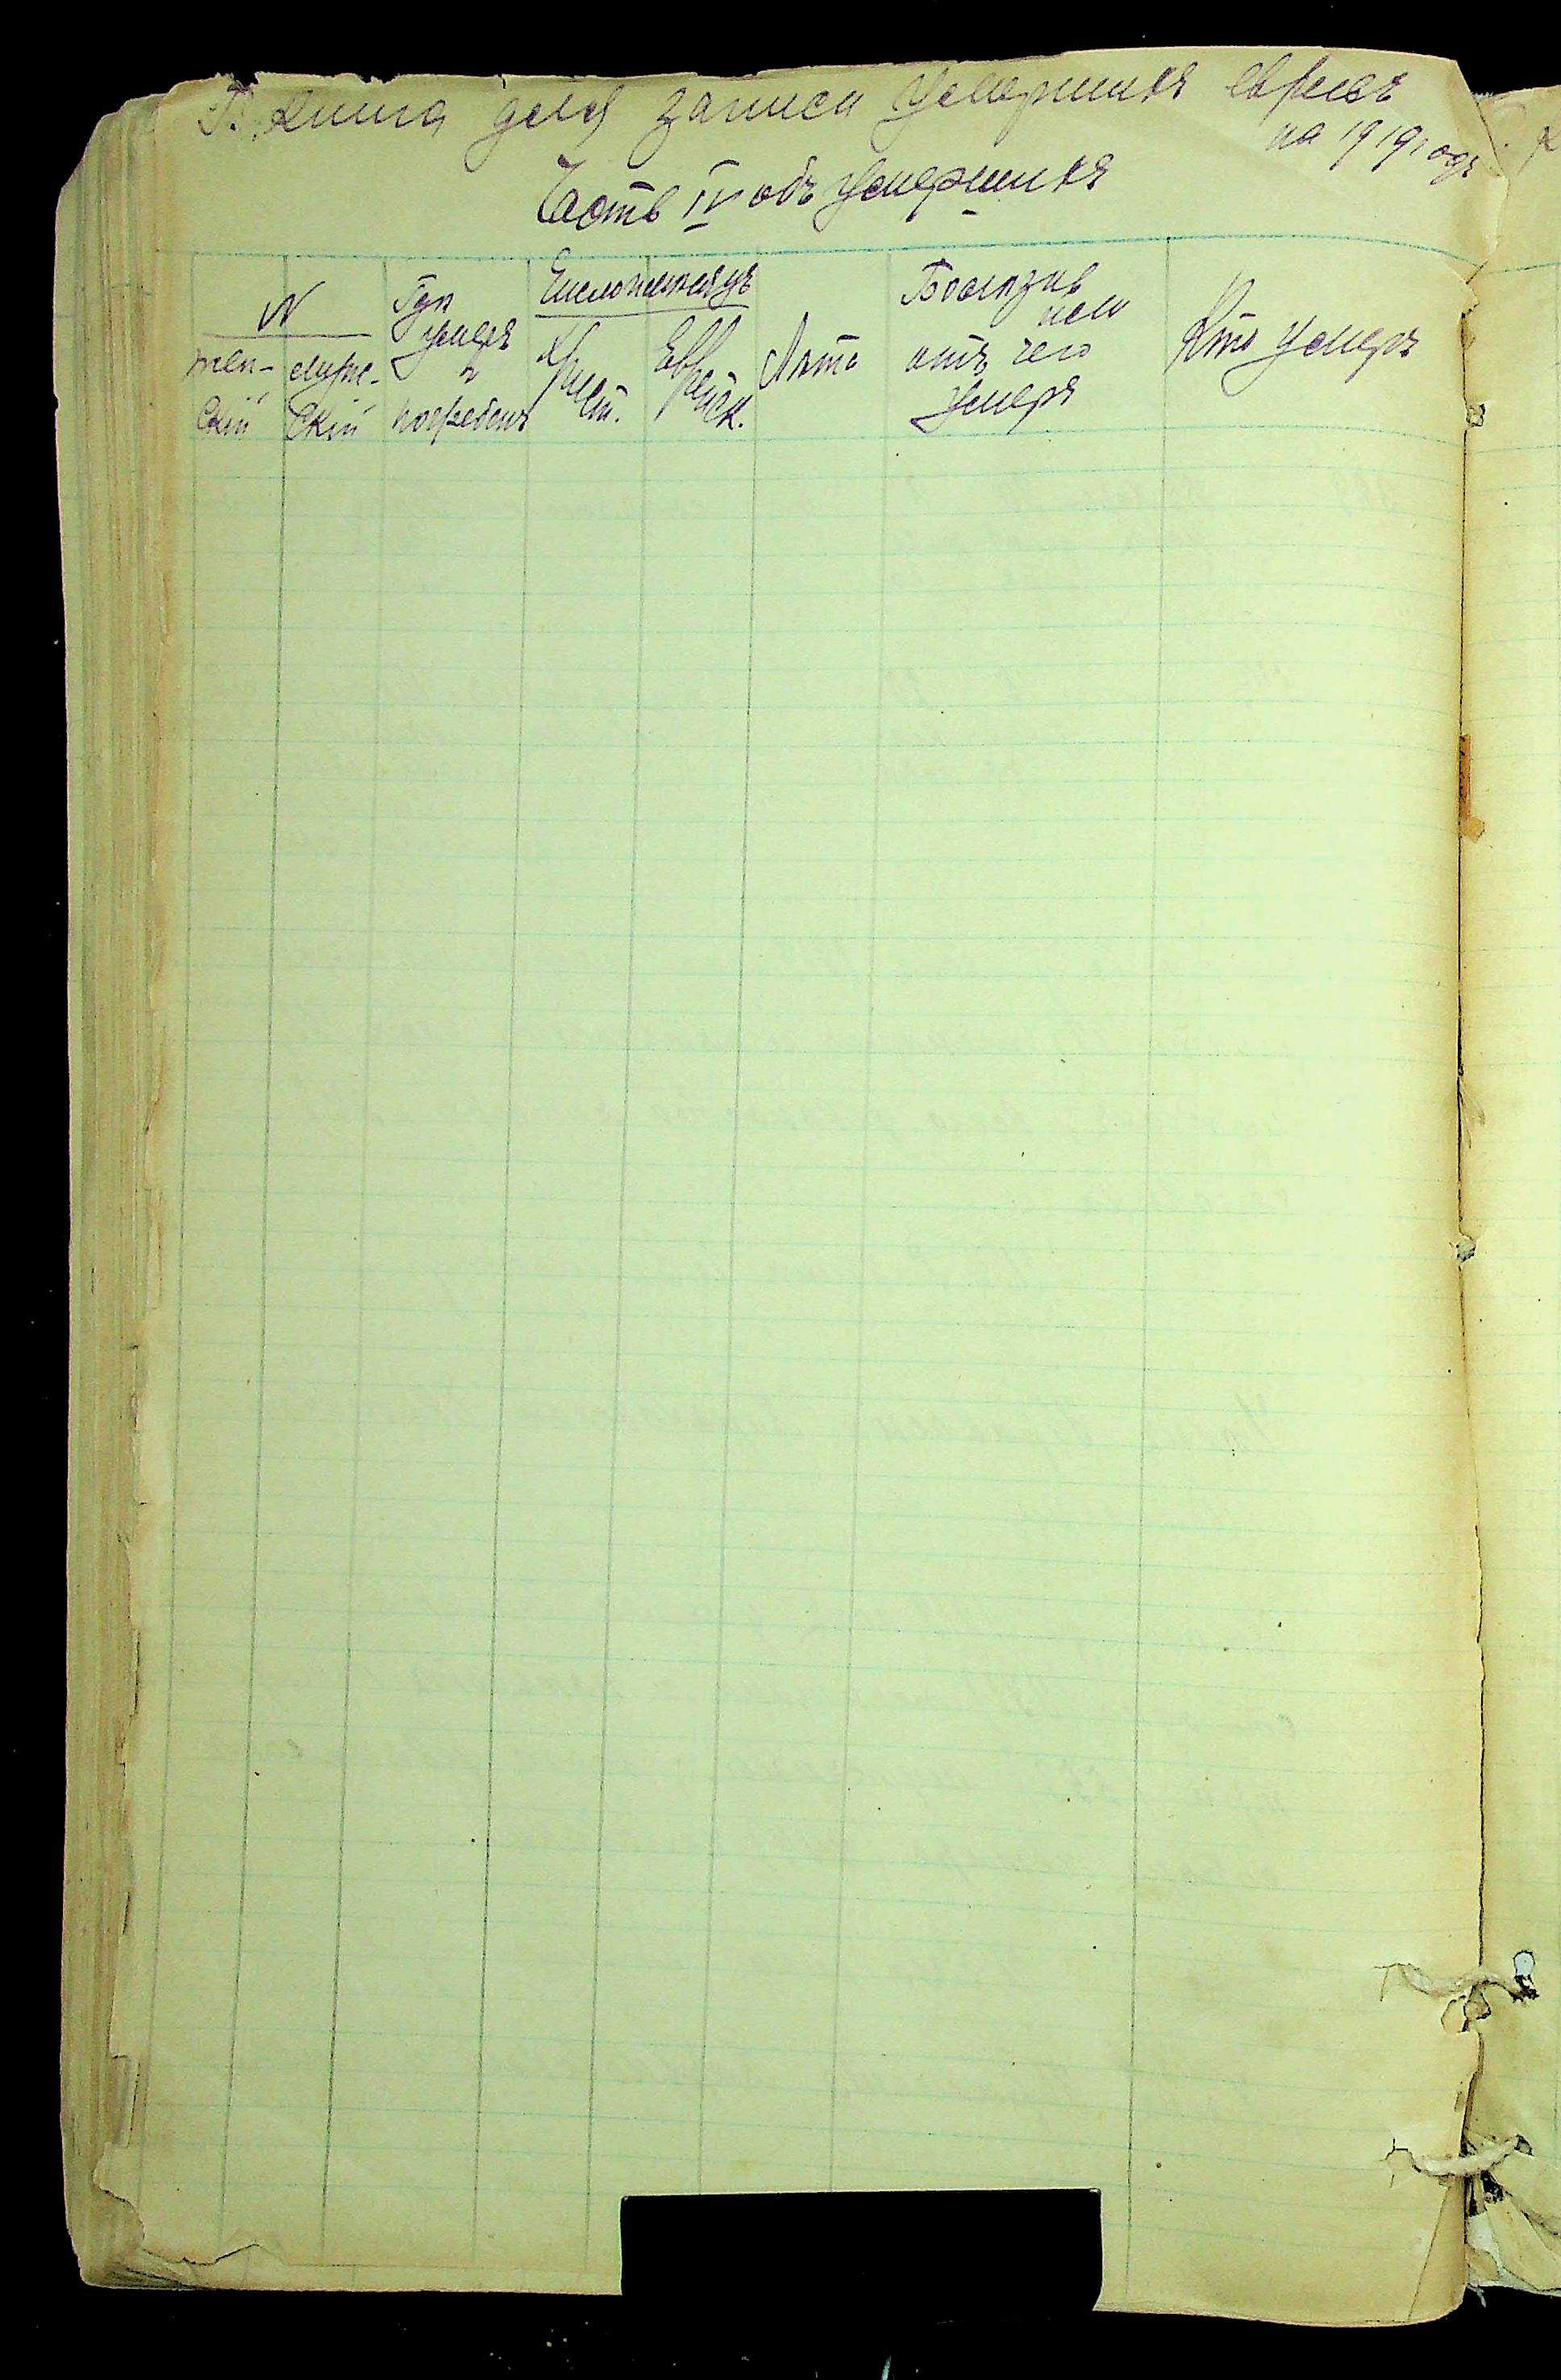 книга для записи умершихъ евреевъ
на 1919 годъ
Часть IV объ умершихъ
N
жен-
ский
муже-
ский
Гдѣ
умеръ
и
погребенъ
Число и мѣсяцъ
Хрис
т.
Евр
ейск.
Лѣта
Болѣзнь
или
отъ чего
умеръ
Кто умеръ